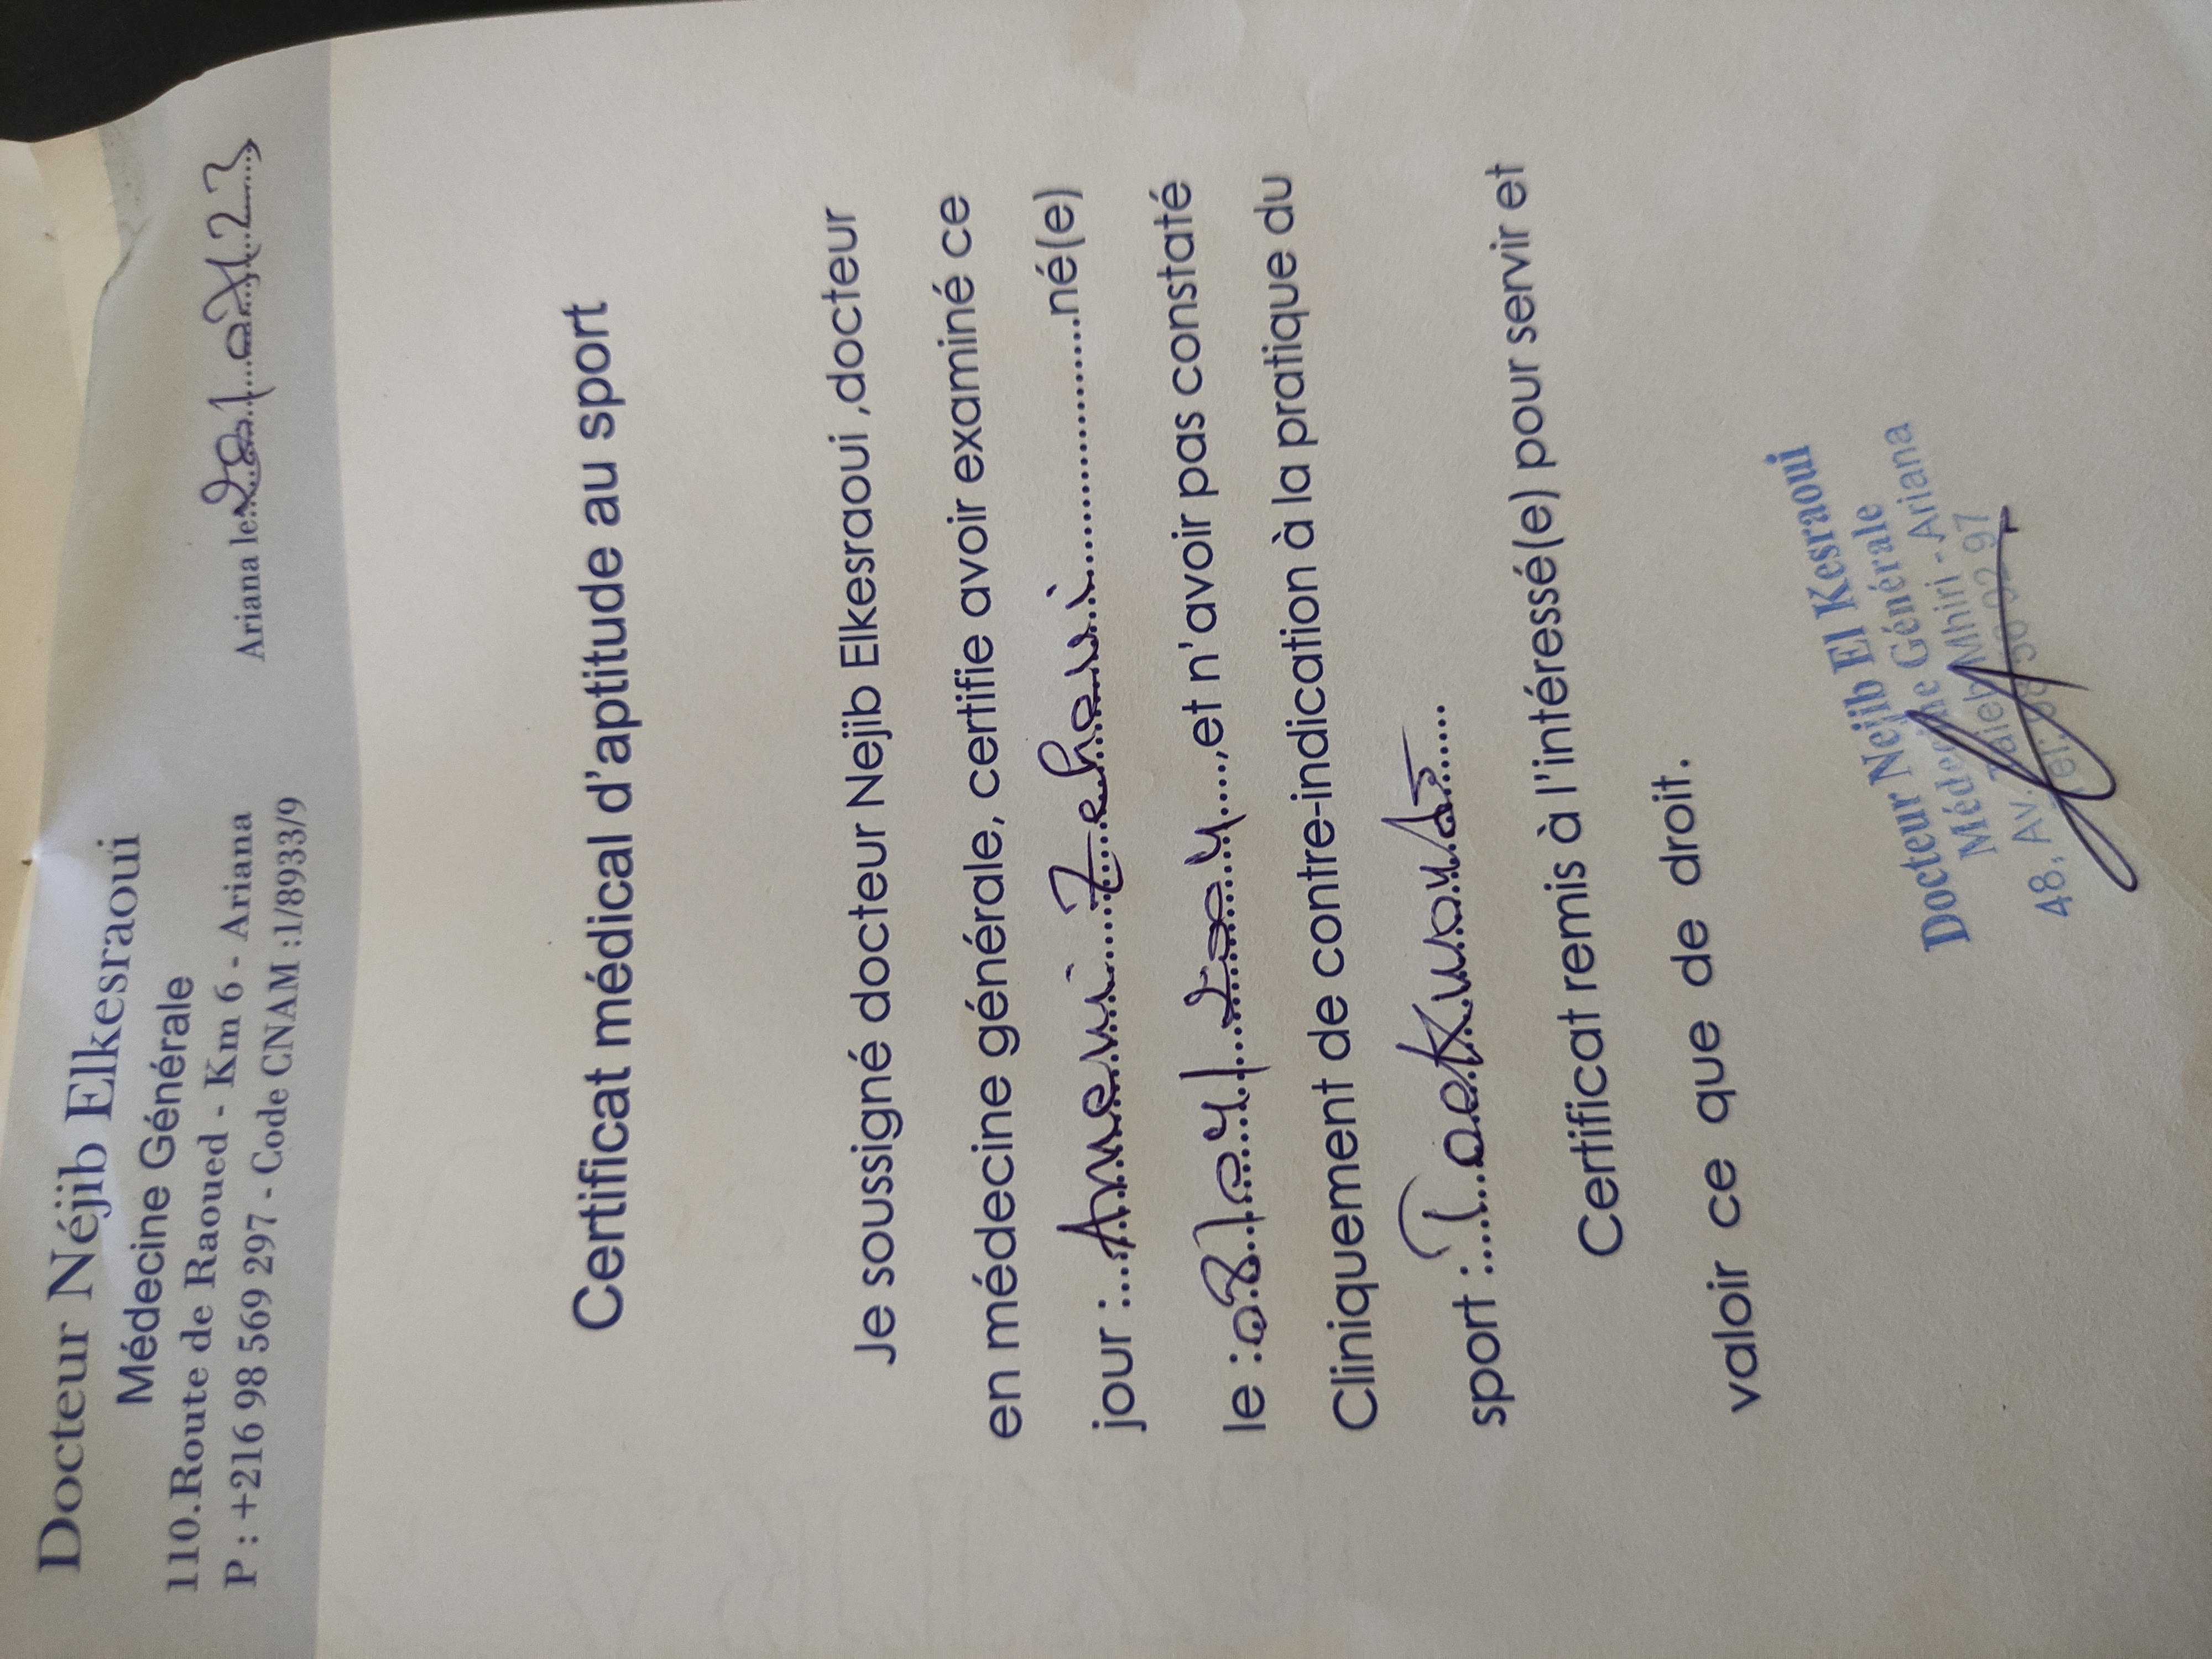 Docteur Néjib Elkesraoui
Médecine Générale
110.Route de Raoued - Km 6 - Ariana
P : +216 98 569 297 - Code CNAM :1/8933/9
Ariana le
Certificat médical d'aptitude au sport
Je soussigné docteur Nejib Elkesraoui ,docteur
en médecine générale, certifie avoir examiné ce
jour : né(e)
le : 08/04/2004 ,et n'avoir pas constaté
Cliniquement de contre-indication à la pratique du
sport :
Certificat remis à l'intéressé(e) pour servir et
valoir ce que de droit.
Docteur Nejib El Kesraoui
Médecine Générale
48, Av. Taieb Mhiri - Ariana